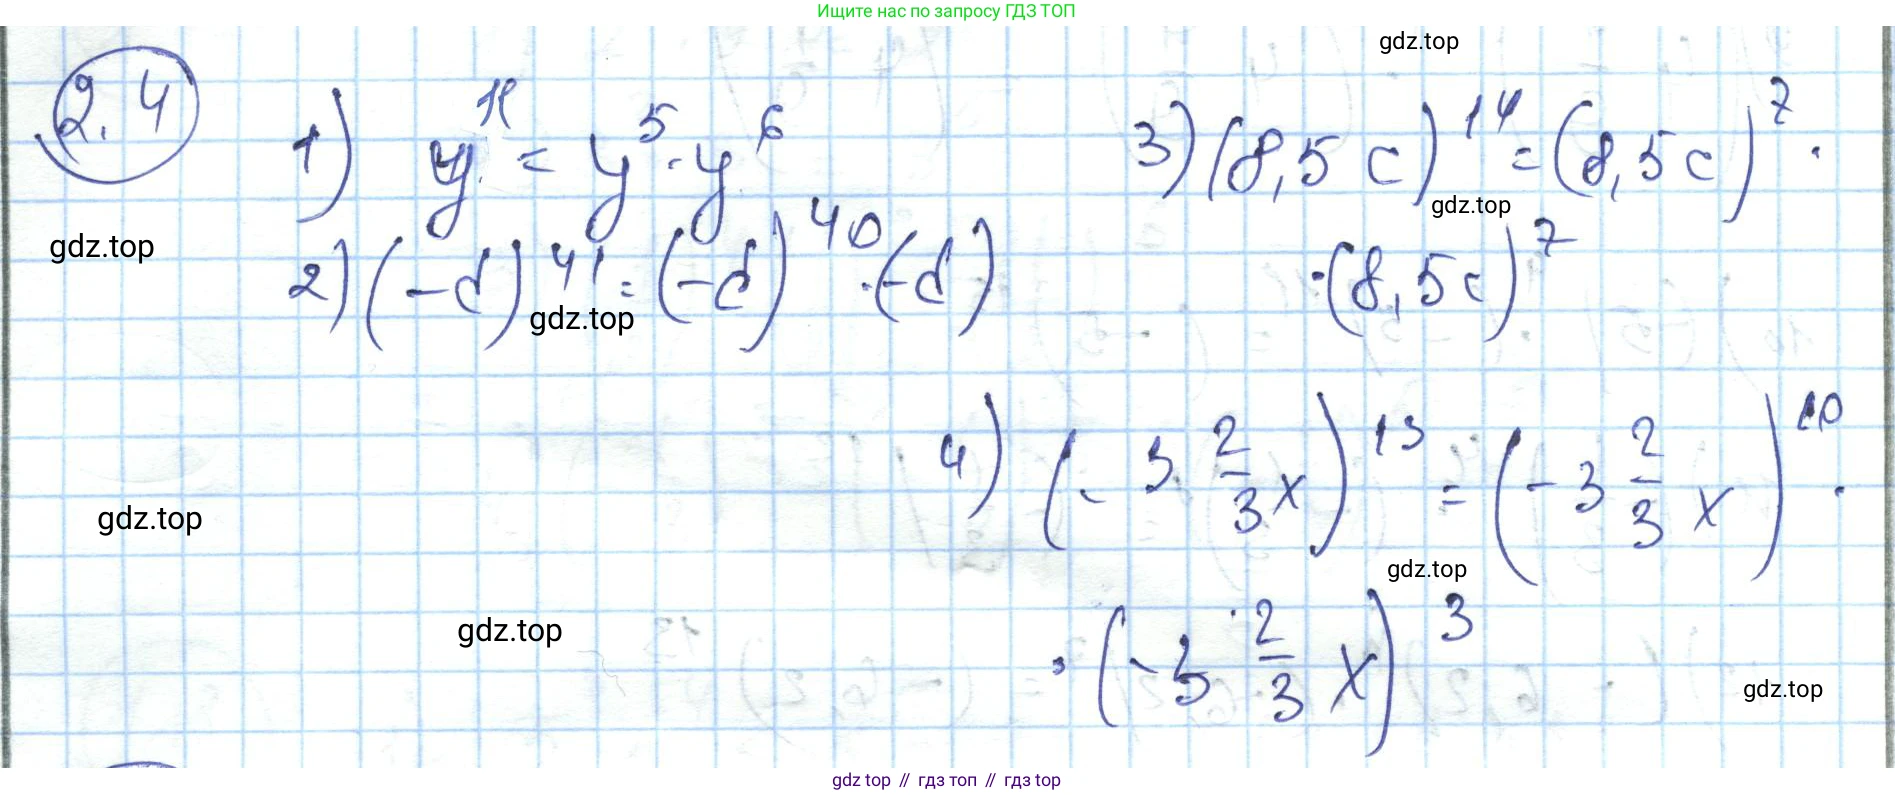 Ищите нас по запросу ГДЗ ТОП
gdz.top
2.4
1) y¹¹ = y⁵ · y⁶
3) (8,5c)¹⁴ = (8,5c)⁷ ·
gdz.top
· (8,5c)⁷
gdz.top
2) (-d)⁴¹ = (-d)⁴⁰ · (-d)
gdz.top
4) (-3 2/3 x)¹³ = (-3 2/3 x)¹⁰ ·
gdz.top
gdz.top
· (-3 2/3 x)³
gdz.top
gdz.top
gdz top // гдз топ // гдз top